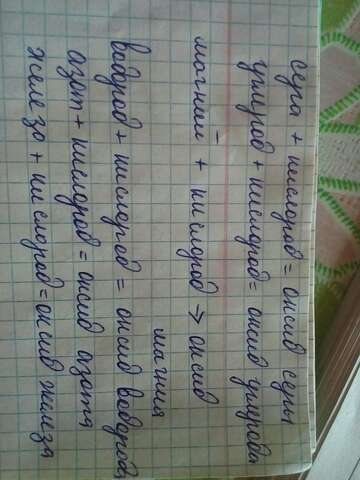 сера + кислород = оксид серы
углерод + кислород = оксид углерода
магний + кислород → оксид
магния
водород + кислород = оксид водорода
азот + кислород = оксид азота
железо + кислород = оксид железа